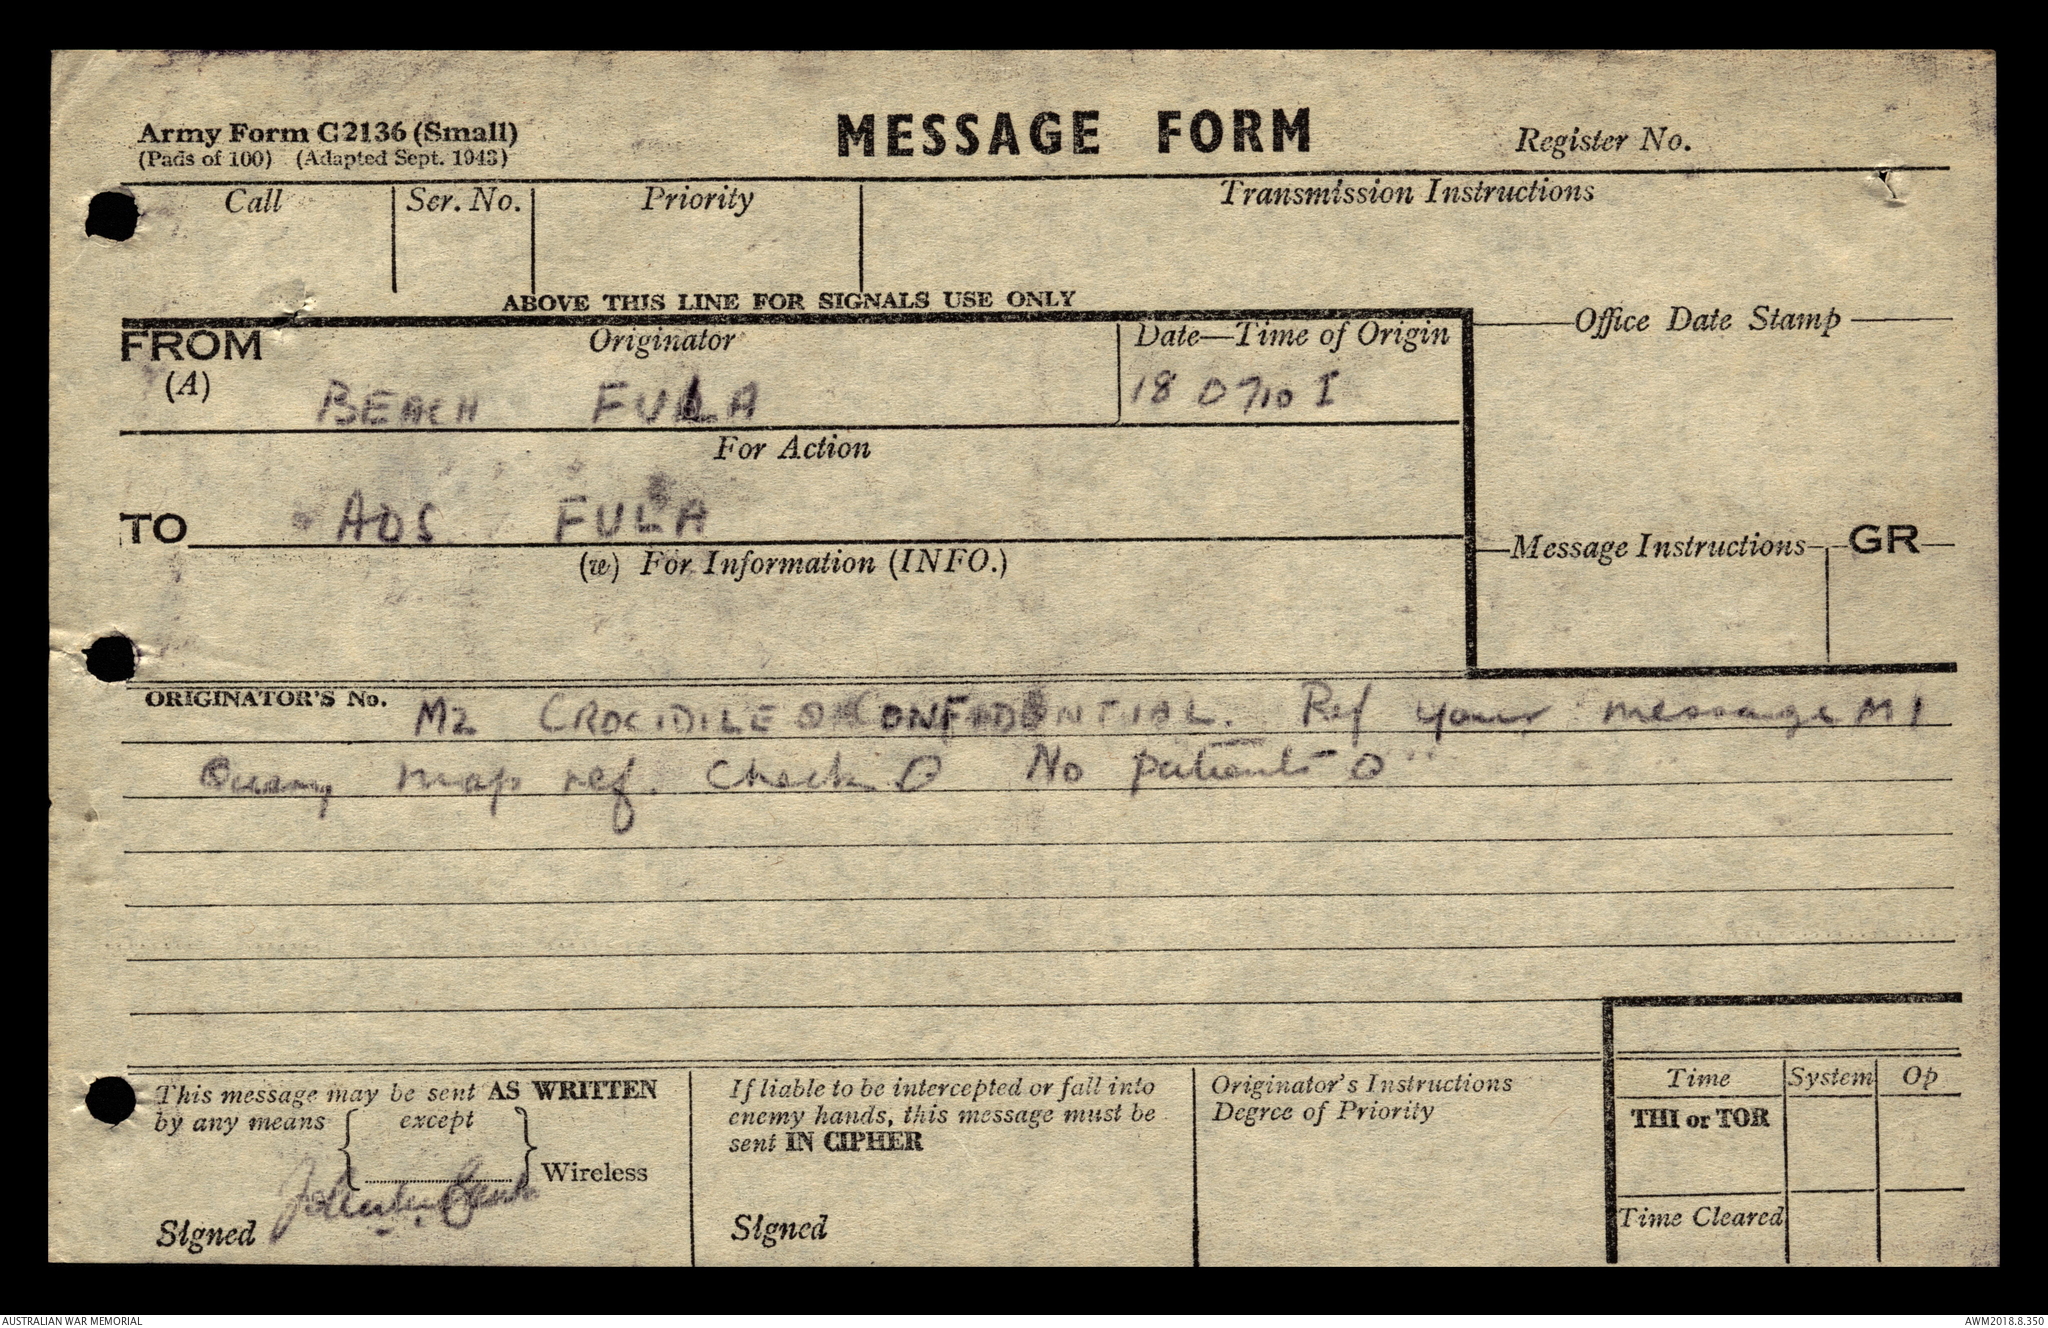 Army Form C2136 (Small)
(Pads of 100) (Adapted Sept. 1943)
MESSAGE FORM
Register No.
Call
Ser. No.
Priority
Transmission Instructions
ABOVE THIS LINE FOR SIGNALS USE ONLY
FROM
(A)
Originator
BEACH FULA
Date—Time of Origin
18 0710 I
Office Date Stamp
For Action
TO
ADS FULA
(w) For Information (INFO.)
Message Instructions
GR
ORIGINATOR'S No.
M2 CROCIDILE O CONFIDONTIAL. Ref your message M1
Query map ref. Check O No patients O
This message may be sent AS WRITTEN
by any means { except
} Wireless
Signed
If liable to be intercepted or fall into
enemy hands, this message must be
sent IN CIPHER
Signed
Originator's Instructions
Degree of Priority
Time
System
Op
THI or TOR
Time Cleared
AUSTRALIAN WAR MEMORIAL
AWM2018.8.350